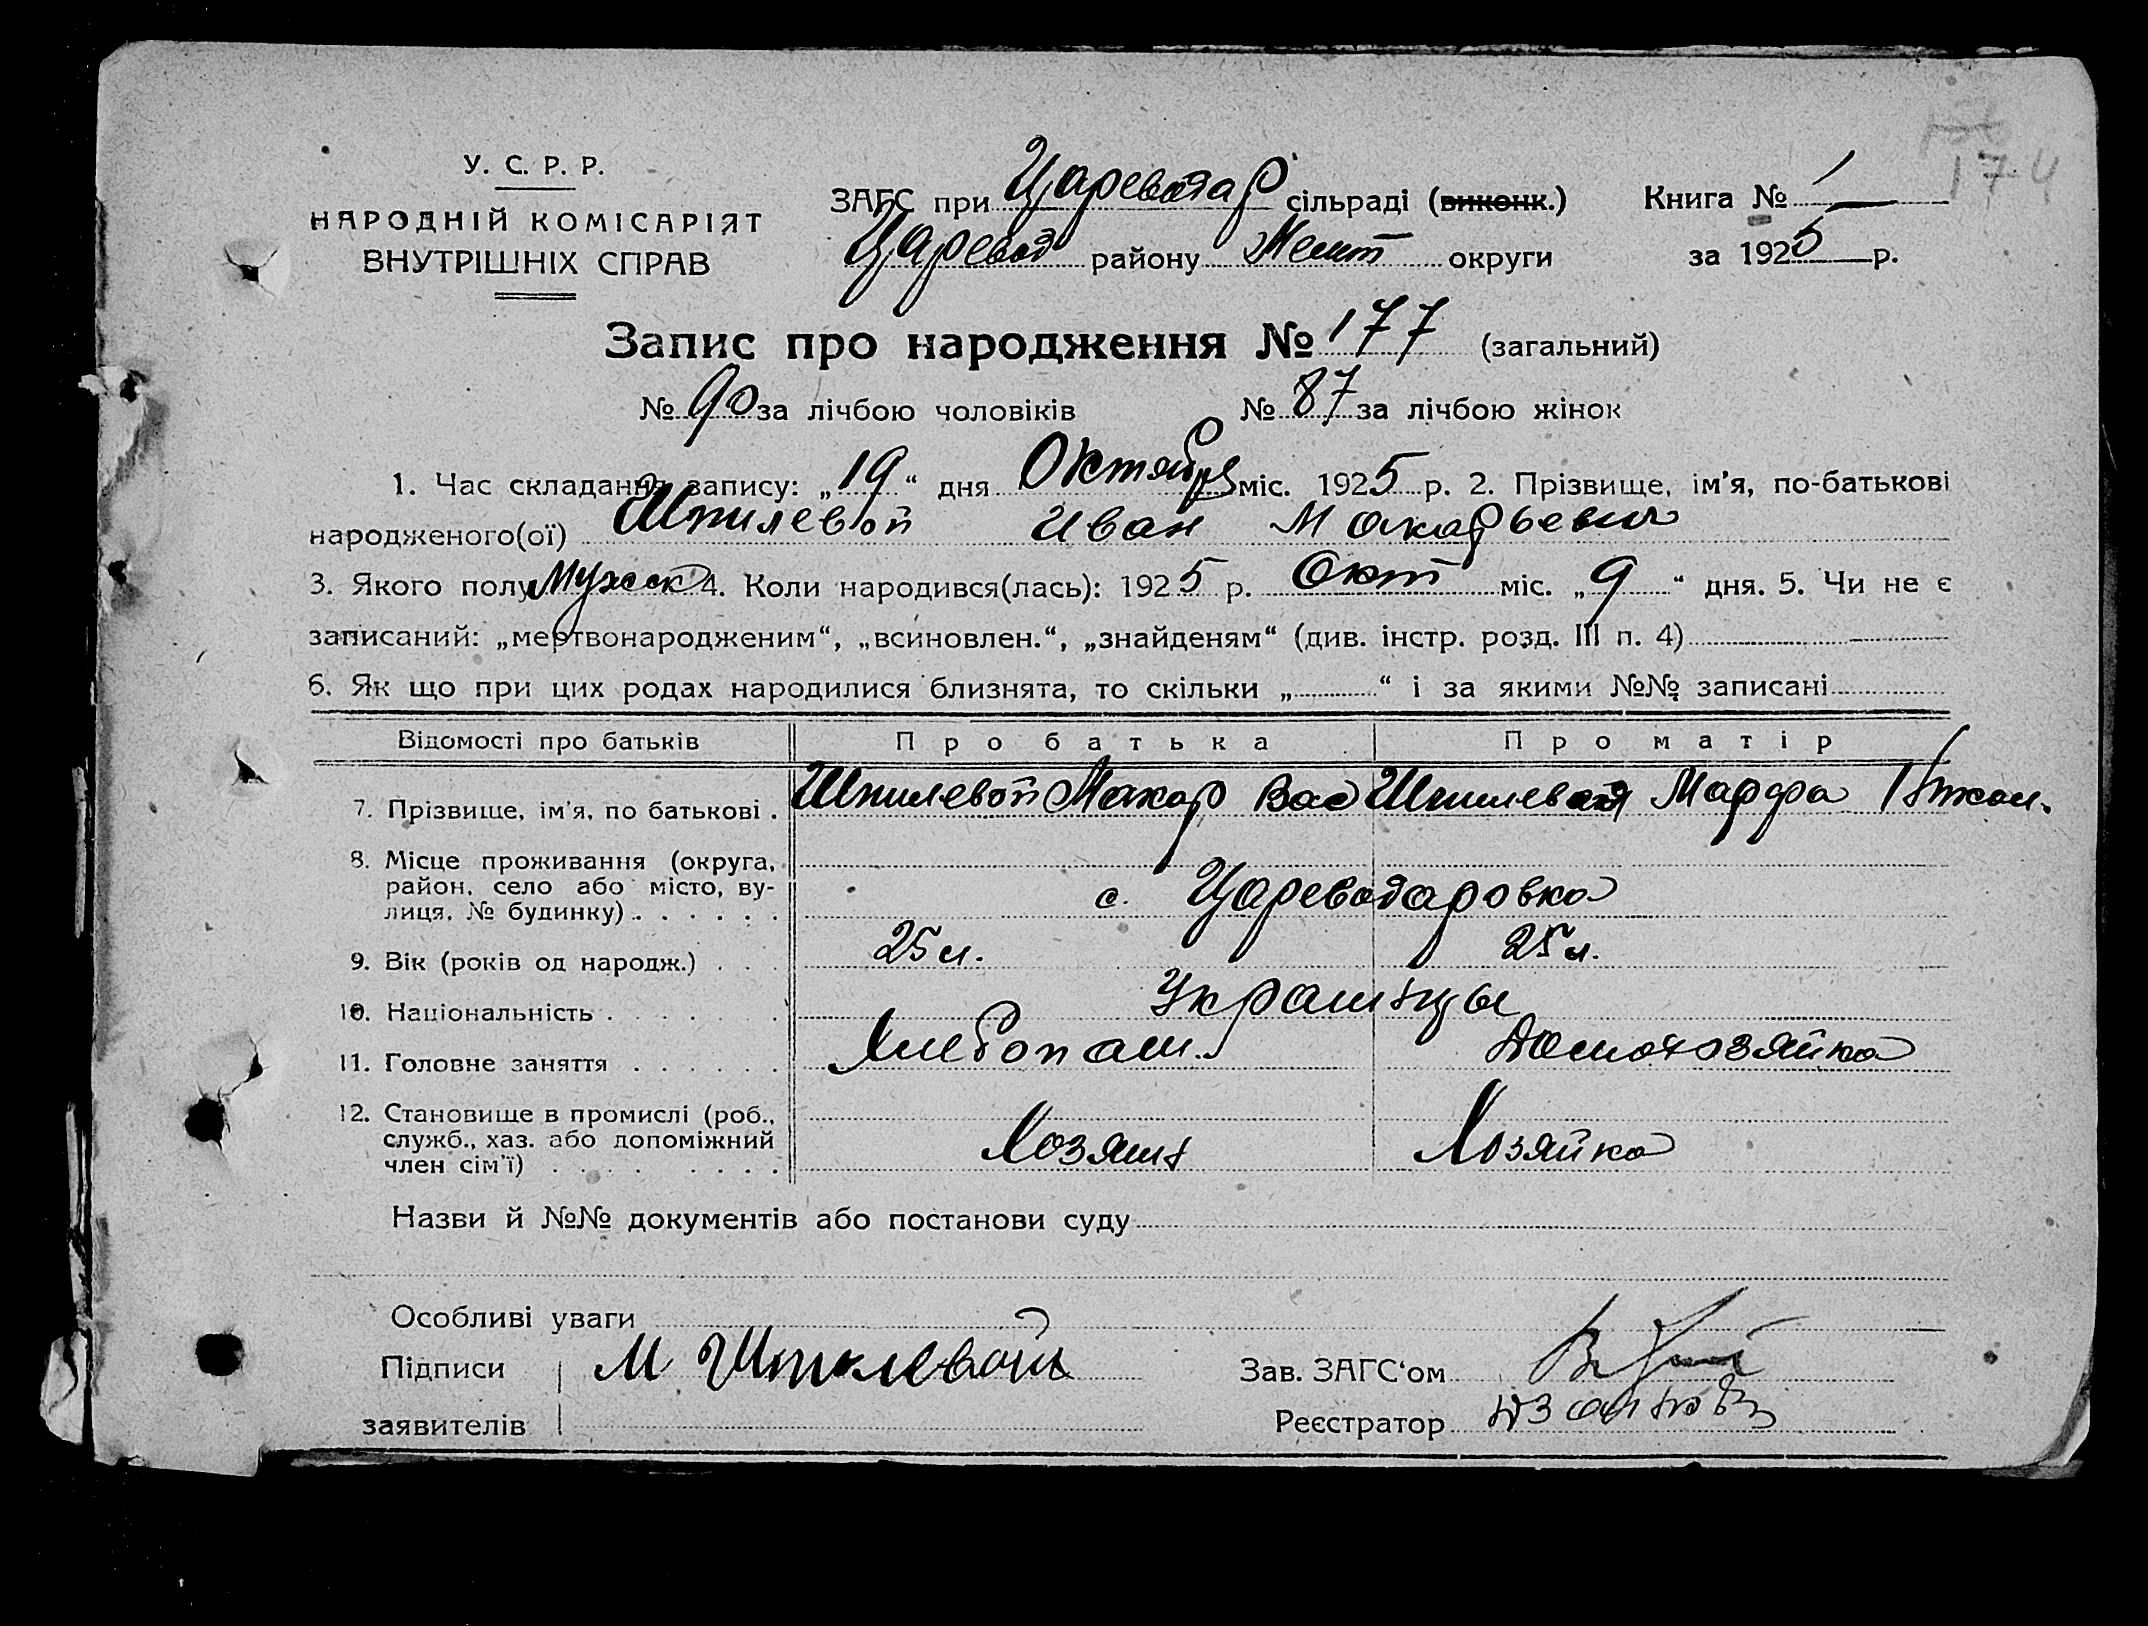 174
У. С. Р. Р.
НАРОДНІЙ КОМІСАРІЯТ
ВНУТРІШНІХ СПРАВ
ЗАГС при Цареводар сільраді (виконк.) Книга № 1
Царевод району Мелит округи за 1925 р.
Запис про народження № 177 (загальний)
№ 90 за лічбою чоловіків № 87 за лічбою жінок
1. Час складання запису: „19“ дня Октября міс. 1925 р. 2. Прізвище, ім'я, по-батькові
народженого(ої) Шпилевой Иван Макарьевич
3. Якого полу Мужск 4. Коли народився(лась): 1925 р. Окт міс. „9“ дня. 5. Чи не є
записаний: „мертвонародженим“, „всиновлен.“, „знайденям“ (див. інстр. розд. III п. 4)
6. Як що при цих родах народилися близнята, то скільки „ “ і за якими №№ записані
Відомості про батьків Про батька Про матір
7. Прізвище, ім'я, по батькові . Шпилевой Макар Вас Шпилевая Марфа
8. Місце проживання (округа,
район, село або місто, ву-
лиця, № будинку) . . . . . . с. Цареводаровка
9. Вік (років од народж.) . . . 25 л. 25 л.
10. Національність . . . . . . Украинцы
11. Головне заняття . . . . . . Хлебопаш. Домохозяйка
12. Становище в промислі (роб.,
служб., хаз. або допоміжний
член сім'ї) . . . . . . . . Хозяин Хозяйка
Назви й №№ документів або постанови суду
Особливі уваги
Підписи М Шпилевой Зав. ЗАГС'ом
заявителів Реєстратор